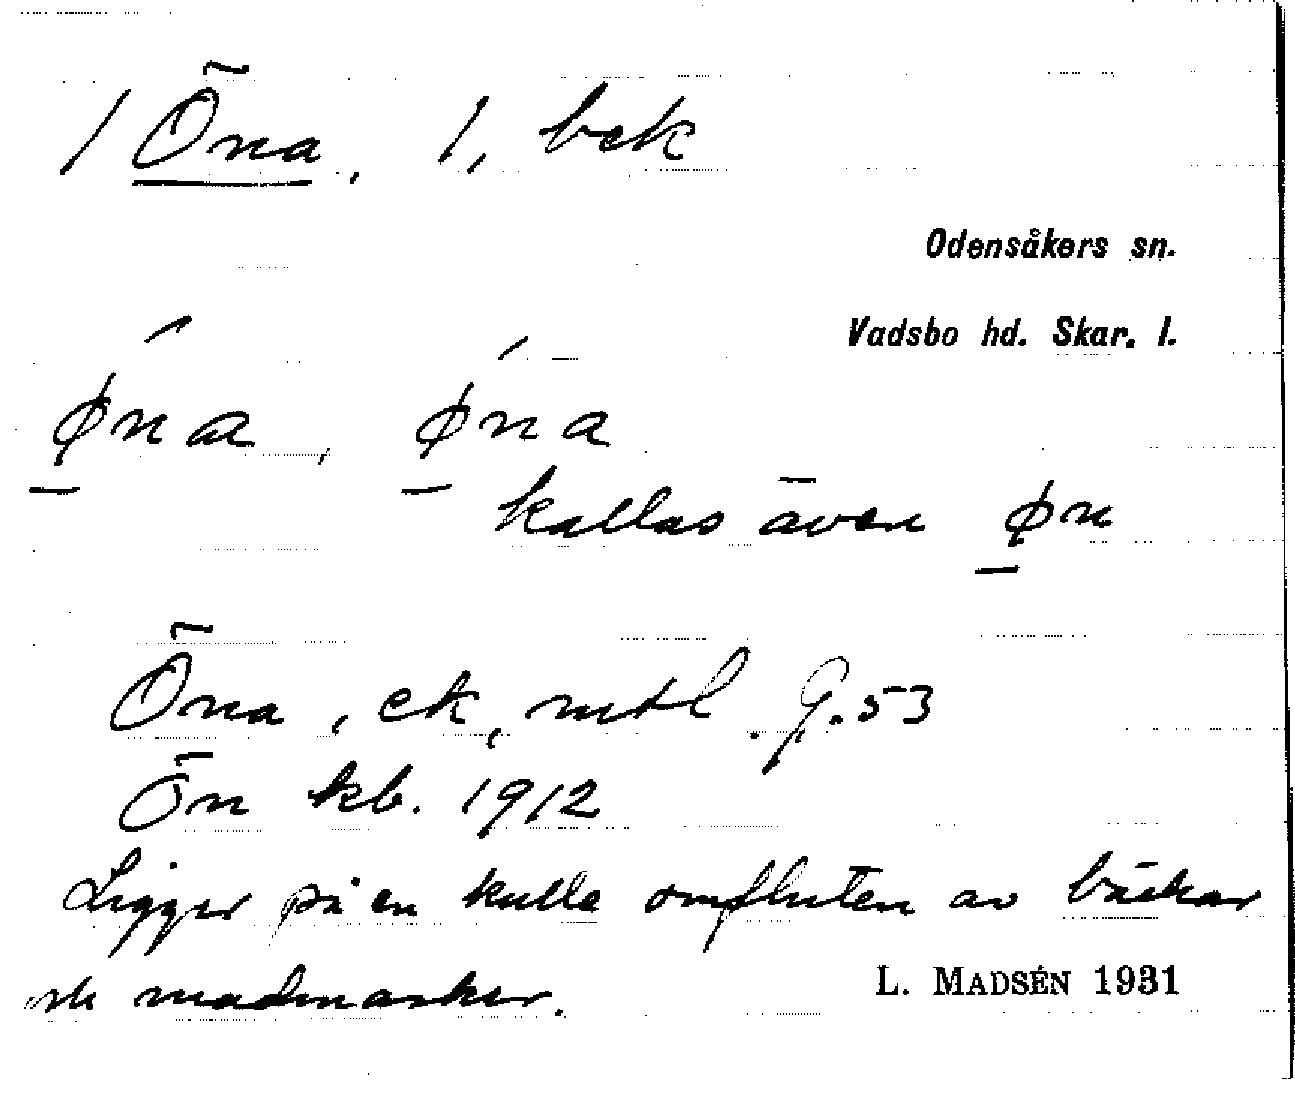 / Öna, 1, bek
Odensåkers sn.
Vadsbo hd. Skar. l.
øna, øna
kallas även øn
Öna, ek, mtl. G. 53
Ön kb. 1912
Ligger på en kulle omfluten av bäckar
madmarker.
L. MADSÉN 1931